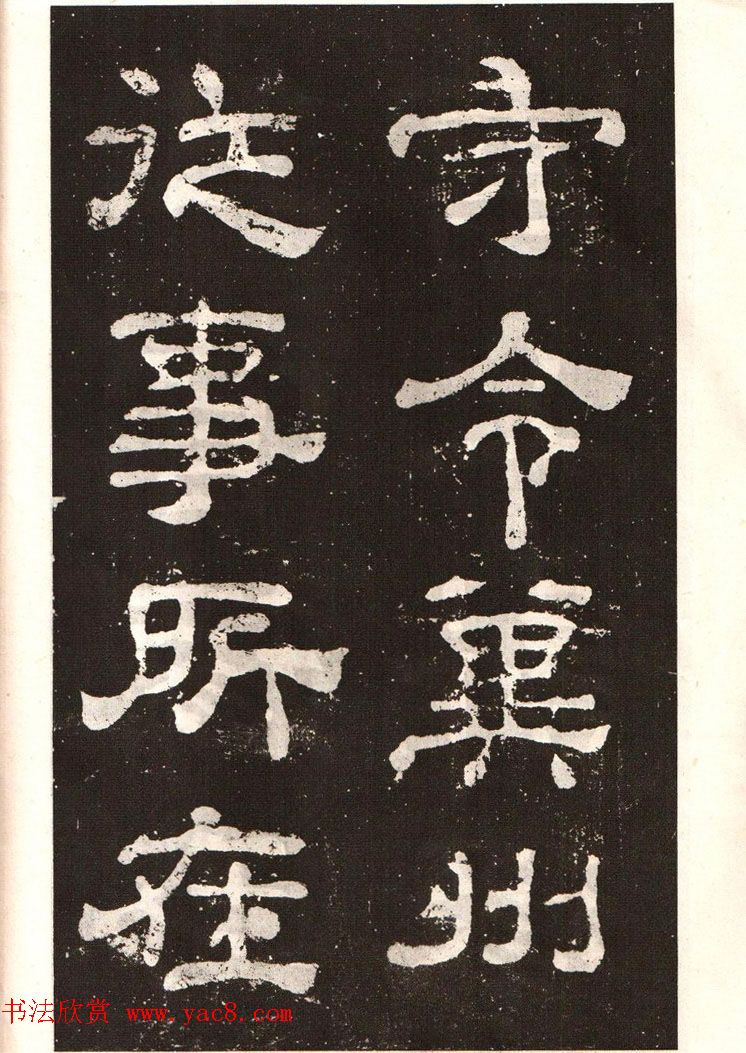 守令冀州
从事所在
书法欣赏 www.yac8.com